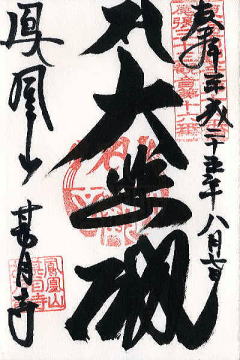 奉拝 平成二十五年八月
尾張三十三観音第十六番
大悲殿
鳳凰山 甚目寺
鳳凰山
甚目寺